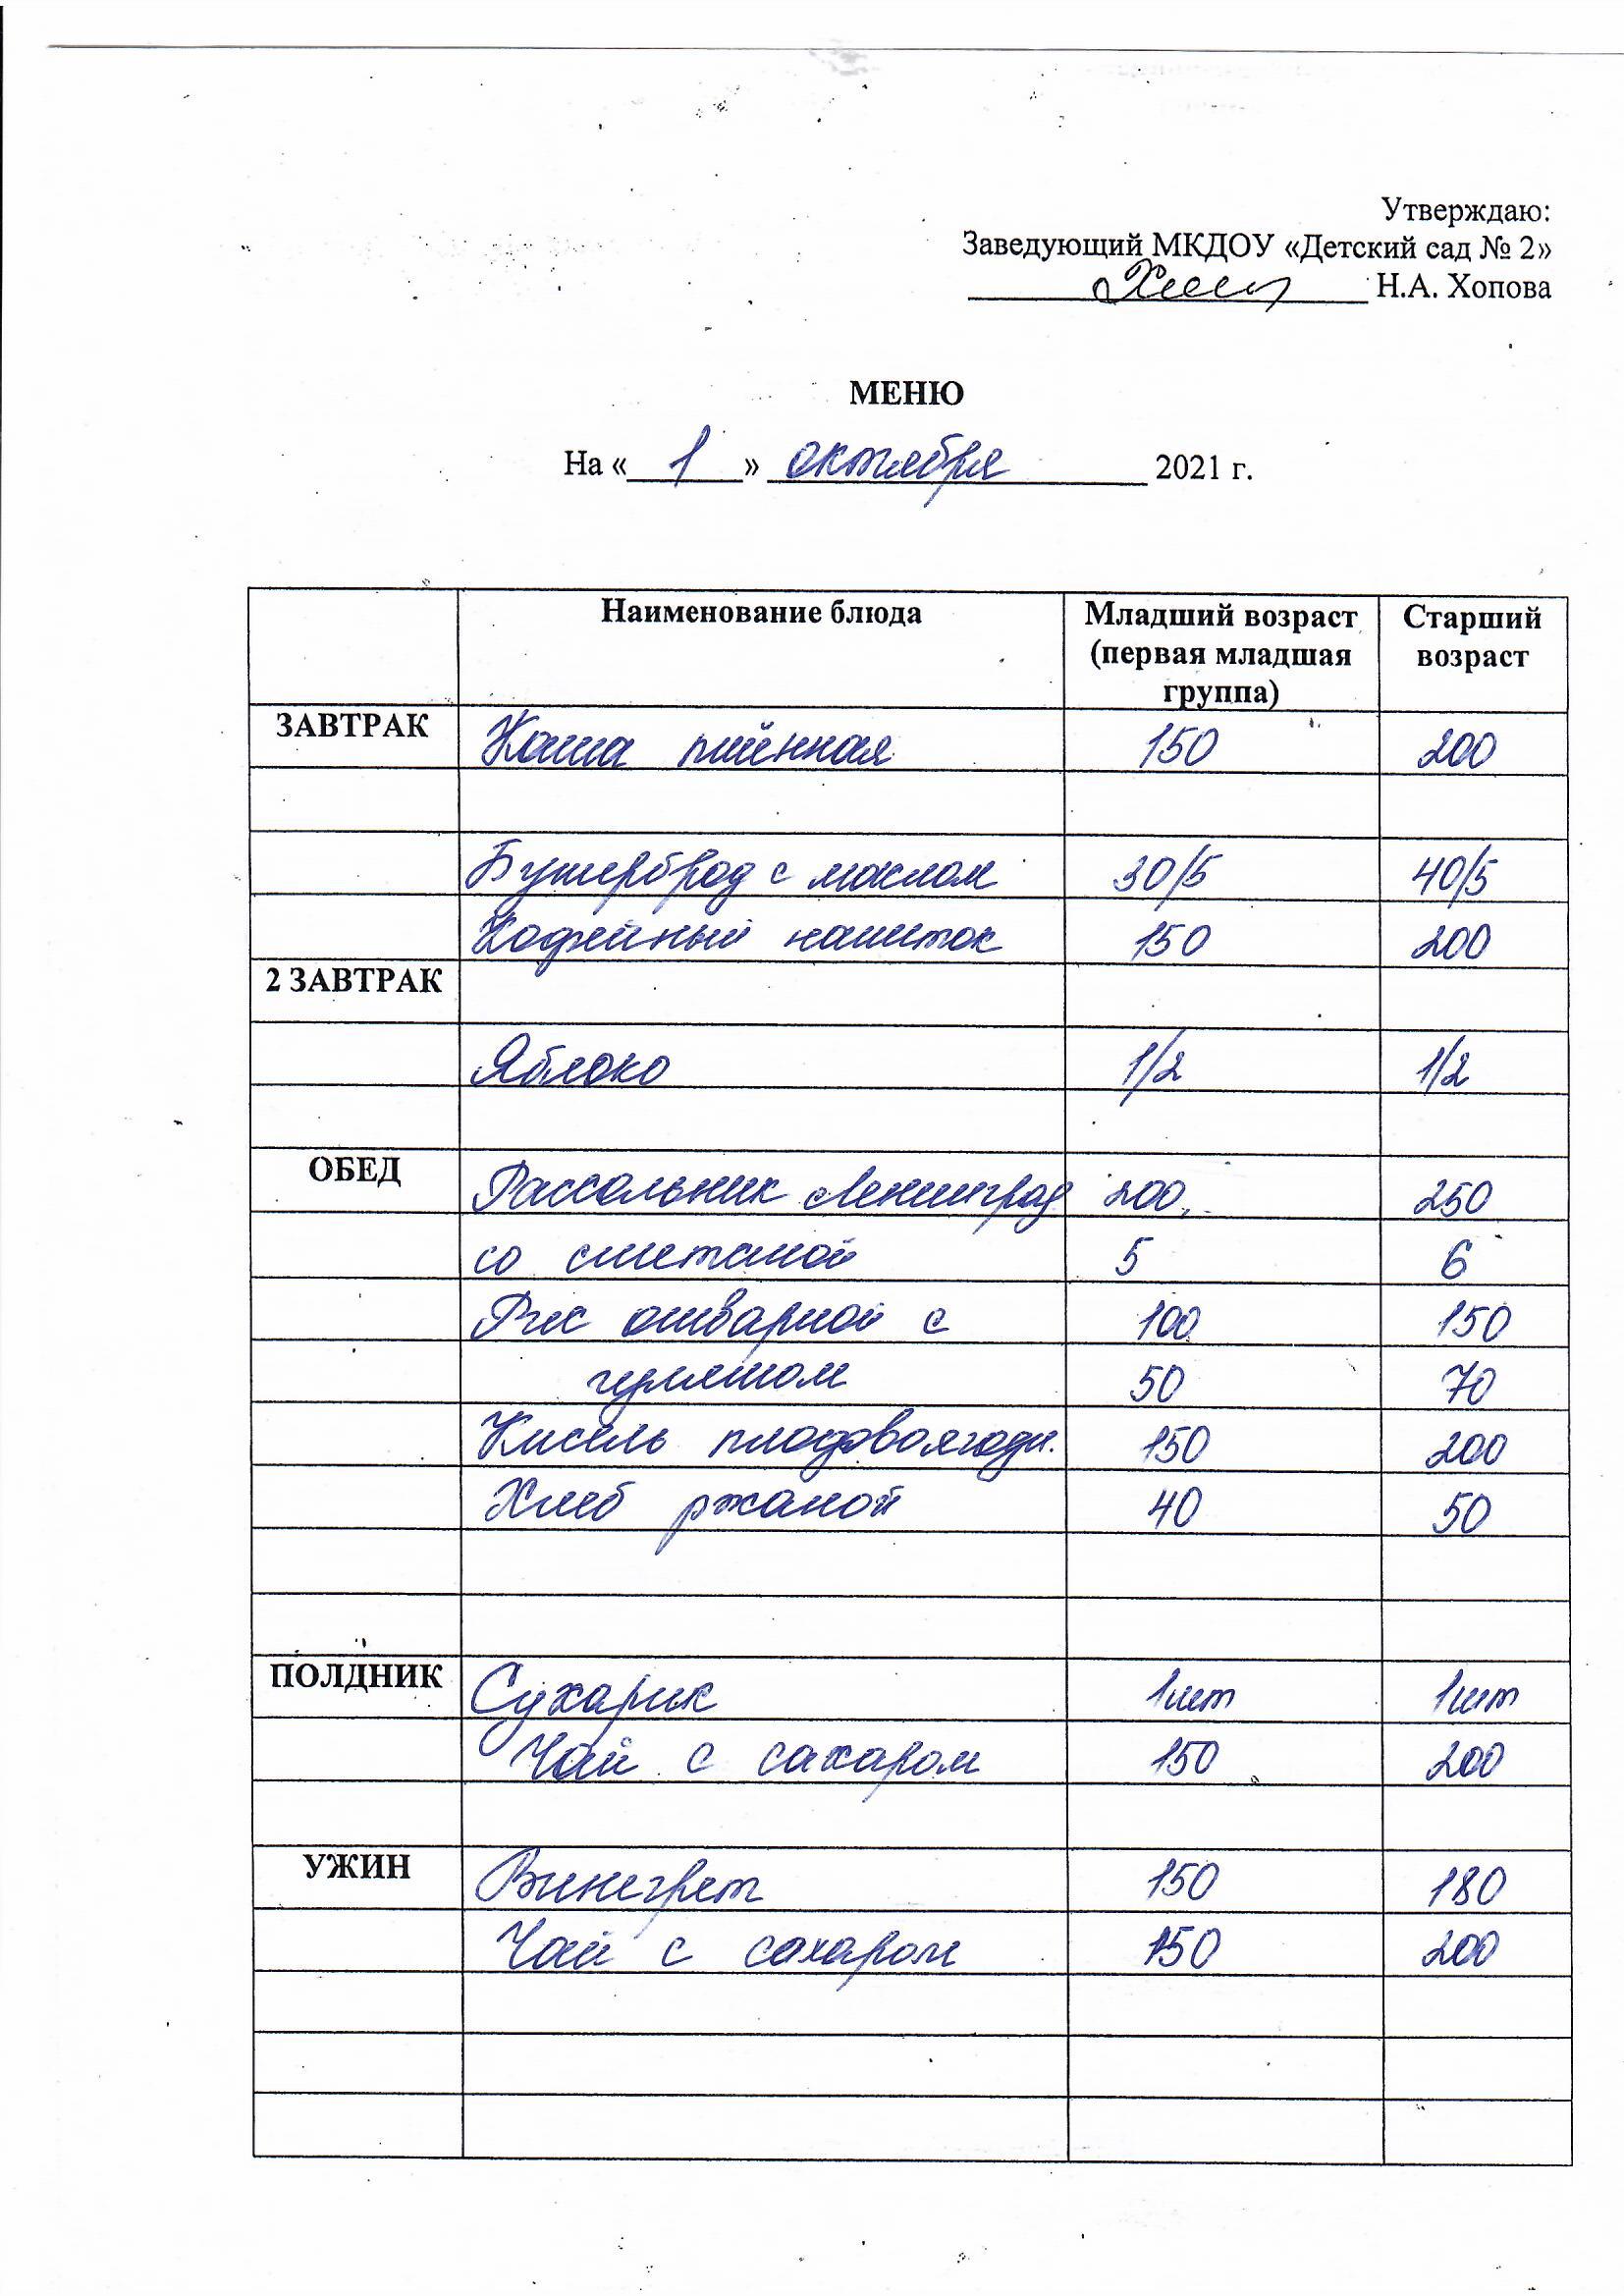 Утверждаю:
Заведующий МКДОУ «Детский сад № 2»
Н.А. Хопова
МЕНЮ
На « 1 » октября 2021 г.
Наименование блюда Младший возраст (первая младшая группа) Старший возраст
ЗАВТРАК Каша пшённая 150 200
Бутерброд с маслом 30/5 40/5
Кофейный напиток 150 200
2 ЗАВТРАК
Яблоко 1/2 1/2
ОБЕД Рассольник Ленинград 200 250
со сметаной 5 6
Рис отварной с 100 150
гуляшом 50 70
Кисель плодовоягодн. 150 200
Хлеб ржаной 40 50
ПОЛДНИК Сухарик 1шт 1шт
Чай с сахаром 150 200
УЖИН Винегрет 150 180
Чай с сахаром 150 200